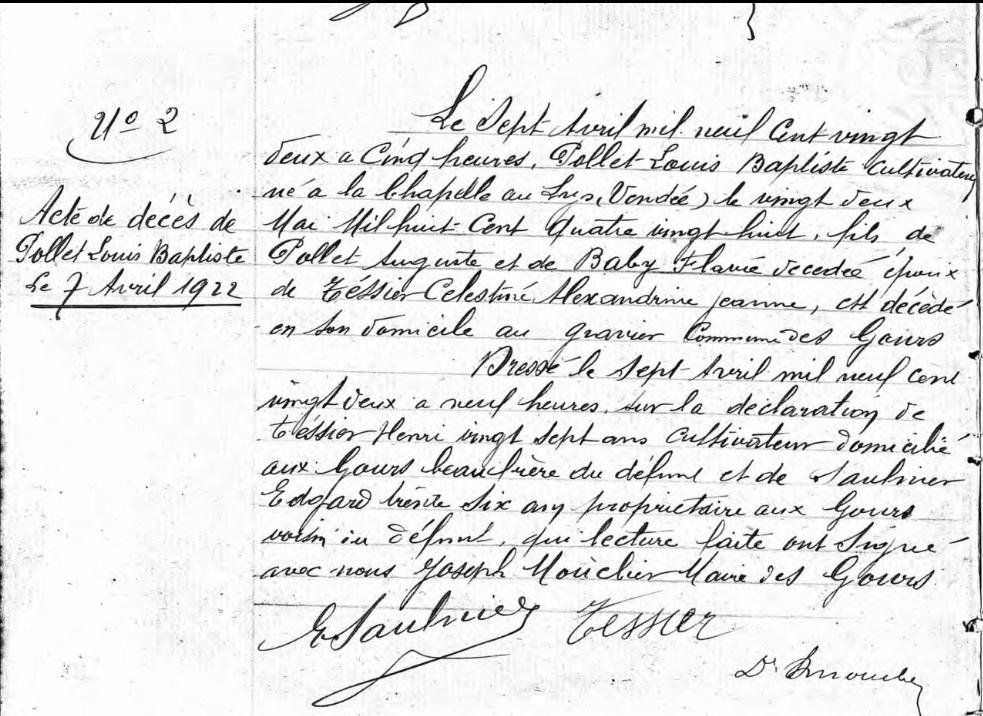 No 2
Acte de décès de
Pollet Louis Baptiste
Le 7 Avril 1922
Le Sept Avril mil neuf Cent vingt
deux a Cinq heures, Pollet Louis Baptiste Cultivateur
né à la Chapelle au Lys (Vendée) le vingt deux
Mai Mil huit Cent Quatre vingt huit, fils de
Pollet Auguste et de Baby Flavie decedée époux
de Téssier Celestine Alexandrine jeanne, est décédé
en son domicile au gravier Commune des Gours
Dressé le Sept Avril mil neuf cent
vingt deux a neuf heures, sur la declaration de
Téssier Henri vingt sept ans Cultivateur domicilié
aux Gours beau frère du défunt et de Saulnier
Edgard trente Six ans propriétaire aux Gours
voisin du défunt, qui lecture faite ont Signé
avec nous Joseph Mouclier Maire des Gours
E Saulnier Tessier
Dr